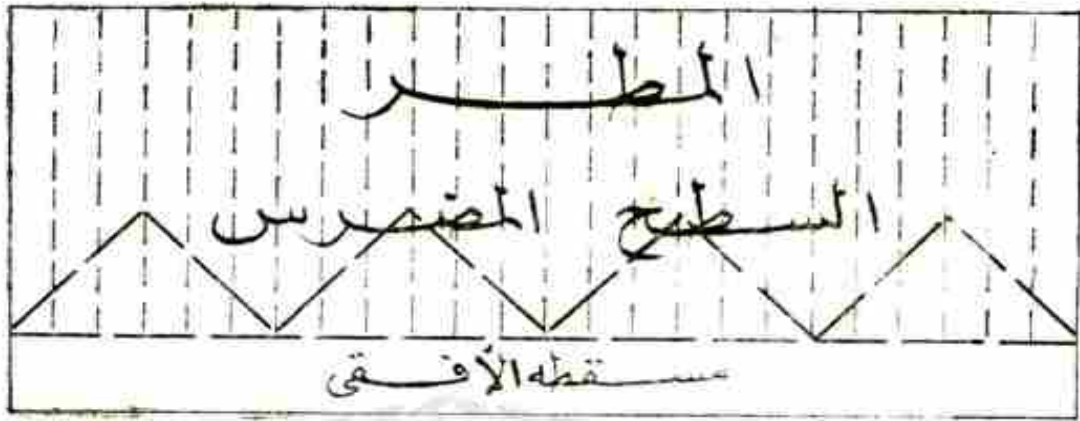 المطر
السطح المضرس
مسقطه الأفقى